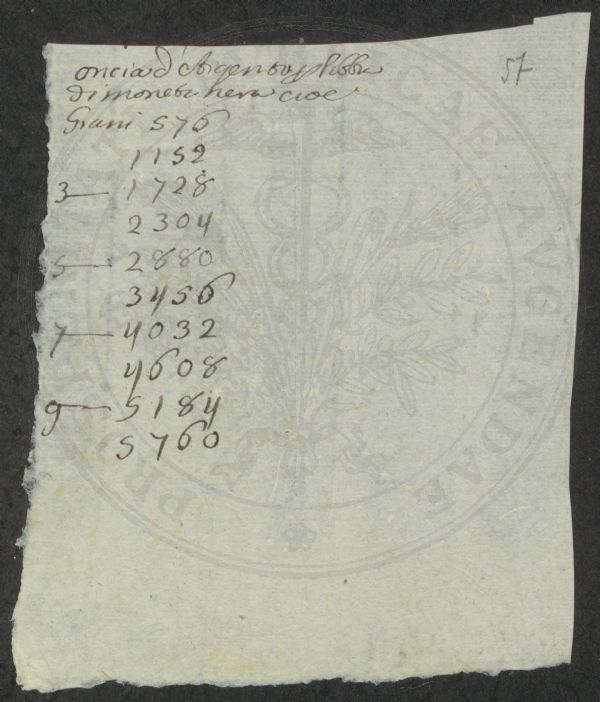 oncia d'Argento p libbra
di moneta nera cioè
57
Grani 576
1152
3— 1728
2304
5— 2880
3456
7— 4032
4608
9— 5184
5760